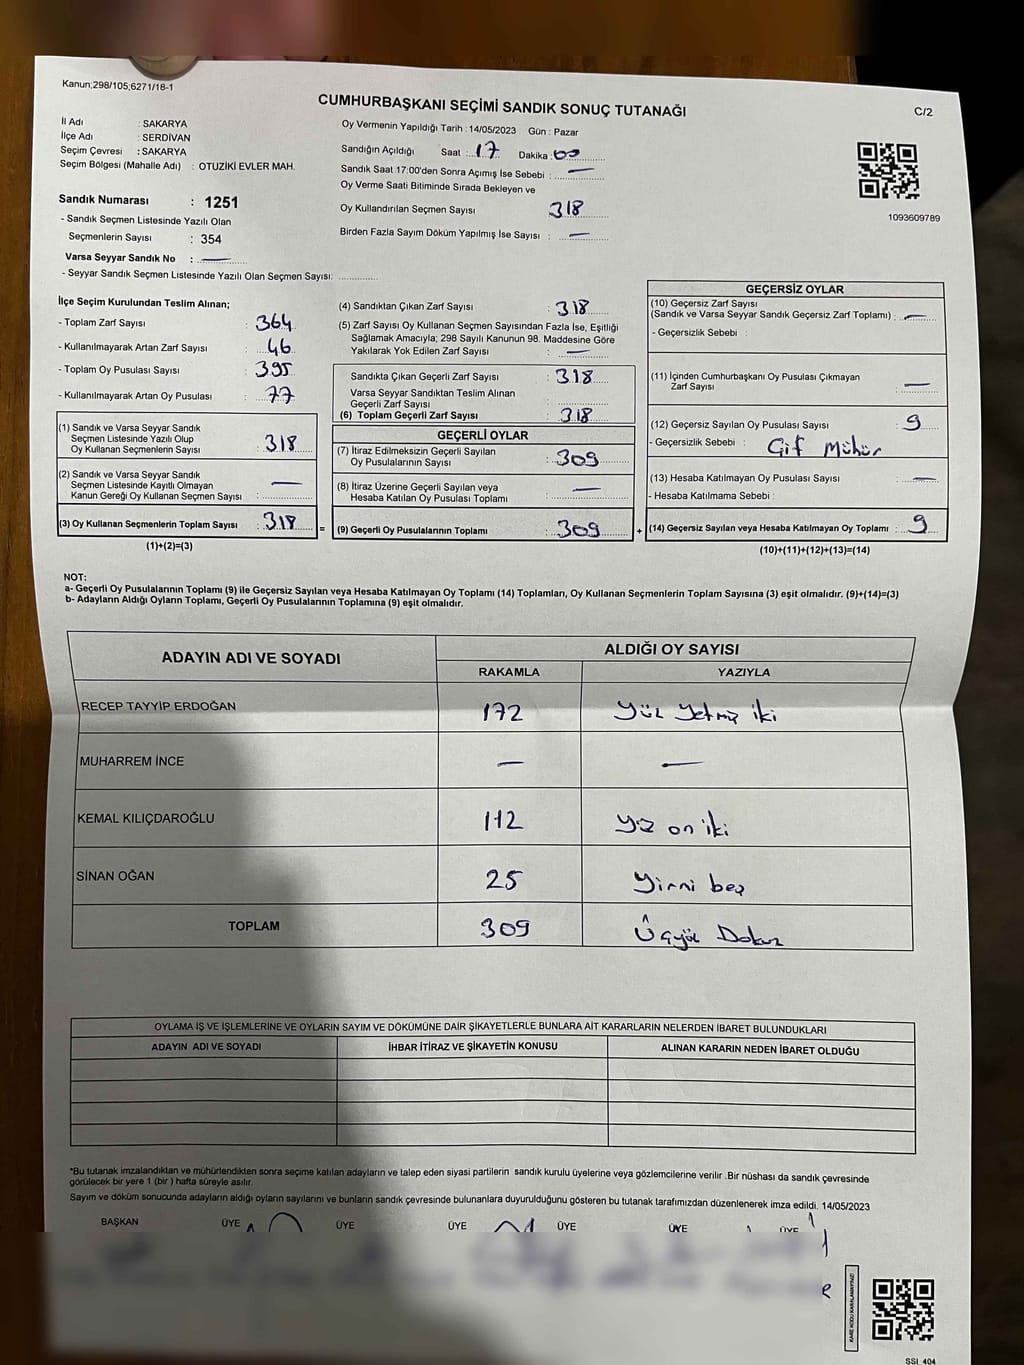 Kanun;298/105;6271/18-1
CUMHURBAŞKANI SEÇİMİ SANDIK SONUÇ TUTANAĞI
C/2
İl Adı : SAKARYA
İlçe Adı : SERDİVAN
Seçim Çevresi : SAKARYA
Seçim Bölgesi (Mahalle Adı) : OTUZİKİ EVLER MAH.
Oy Vermenin Yapıldığı Tarih : 14/05/2023 Gün : Pazar
Sandığın Açıldığı Saat : 17 Dakika : 00
Sandık Saat 17:00'den Sonra Açımış İse Sebebi : —
Oy Verme Saati Bitiminde Sırada Bekleyen ve
Oy Kullandırılan Seçmen Sayısı 318
Birden Fazla Sayım Döküm Yapılmış İse Sayısı : —
1093609789
Sandık Numarası : 1251
- Sandık Seçmen Listesinde Yazılı Olan
Seçmenlerin Sayısı : 354
Varsa Seyyar Sandık No : —
- Seyyar Sandık Seçmen Listesinde Yazılı Olan Seçmen Sayısı:
İlçe Seçim Kurulundan Teslim Alınan;
- Toplam Zarf Sayısı : 364
- Kullanılmayarak Artan Zarf Sayısı : 46
- Toplam Oy Pusulası Sayısı : 395
- Kullanılmayarak Artan Oy Pusulası : 77
(1) Sandık ve Varsa Seyyar Sandık
Seçmen Listesinde Yazılı Olup
Oy Kullanan Seçmenlerin Sayısı : 318
(2) Sandık ve Varsa Seyyar Sandık
Seçmen Listesinde Kayıtlı Olmayan
Kanun Gereği Oy Kullanan Seçmen Sayısı : —
(3) Oy Kullanan Seçmenlerin Toplam Sayısı : 318 =
(1)+(2)=(3)
(4) Sandıktan Çıkan Zarf Sayısı : 318
(5) Zarf Sayısı Oy Kullanan Seçmen Sayısından Fazla İse, Eşitliği
Sağlamak Amacıyla; 298 Sayılı Kanunun 98. Maddesine Göre
Yakılarak Yok Edilen Zarf Sayısı : —
Sandıkta Çıkan Geçerli Zarf Sayısı : 318
Varsa Seyyar Sandıktan Teslim Alınan
Geçerli Zarf Sayısı :
(6) Toplam Geçerli Zarf Sayısı : 318
GEÇERLİ OYLAR
(7) İtiraz Edilmeksizin Geçerli Sayılan
Oy Pusulasının Sayısı : 309
(8) İtiraz Üzerine Geçerli Sayılan veya
Hesaba Katılan Oy Pusulası Toplamı : —
(9) Geçerli Oy Pusulalarının Toplamı : 309 +
GEÇERSİZ OYLAR
(10) Geçersiz Zarf Sayısı
(Sandık ve Varsa Seyyar Sandık Geçersiz Zarf Toplamı) : —
- Geçersizlik Sebebi :
(11) İçinden Cumhurbaşkanı Oy Pusulası Çıkmayan
Zarf Sayısı : —
(12) Geçersiz Sayılan Oy Pusulası Sayısı : 9
- Geçersizlik Sebebi : Çif Mühür
(13) Hesaba Katılmayan Oy Pusulası Sayısı : —
- Hesaba Katılmama Sebebi :
(14) Geçersiz Sayılan veya Hesaba Katılmayan Oy Toplamı : 9
(10)+(11)+(12)+(13)=(14)
NOT:
a- Geçerli Oy Pusulalarının Toplamı (9) ile Geçersiz Sayılan veya Hesaba Katılmayan Oy Toplamı (14) Toplamları, Oy Kullanan Seçmenlerin Toplam Sayısına (3) eşit olmalıdır. (9)+(14)=(3)
b- Adayların Aldığı Oyların Toplamı, Geçerli Oy Pusulalarının Toplamına (9) eşit olmalıdır.
ADAYIN ADI VE SOYADI ALDIĞI OY SAYISI
RAKAMLA YAZIYLA
RECEP TAYYİP ERDOĞAN 172 yüz yetmiş iki
MUHARREM İNCE — —
KEMAL KILIÇDAROĞLU 112 yüz on iki
SİNAN OĞAN 25 yirmi beş
TOPLAM 309 Üçyüz Dokuz
OYLAMA İŞ VE İŞLEMLERİNE VE OYLARIN SAYIM VE DÖKÜMÜNE DAİR ŞİKAYETLERLE BUNLARA AİT KARARLARIN NELERDEN İBARET BULUNDUKLARI
ADAYIN ADI VE SOYADI İHBAR İTİRAZ VE ŞİKAYETİN KONUSU ALINAN KARARIN NEDEN İBARET OLDUĞU
*Bu tutanak imzalandıktan ve mühürlendikten sonra seçime katılan adayların ve talep eden siyasi partilerin sandık kurulu üyelerine veya gözlemcilerine verilir .Bir nüshası da sandık çevresinde
görülecek bir yere 1 (bir ) hafta süreyle asılır.
Sayım ve döküm sonucunda adayların aldığı oyların sayılarını ve bunların sandık çevresinde bulunanlara duyurulduğunu gösteren bu tutanak tarafımızdan düzenlenerek imza edildi. 14/05/2023
BAŞKAN ÜYE ÜYE ÜYE ÜYE ÜYE ÜYE
KARE KODU KARALAMAYINIZ!
SSI_404